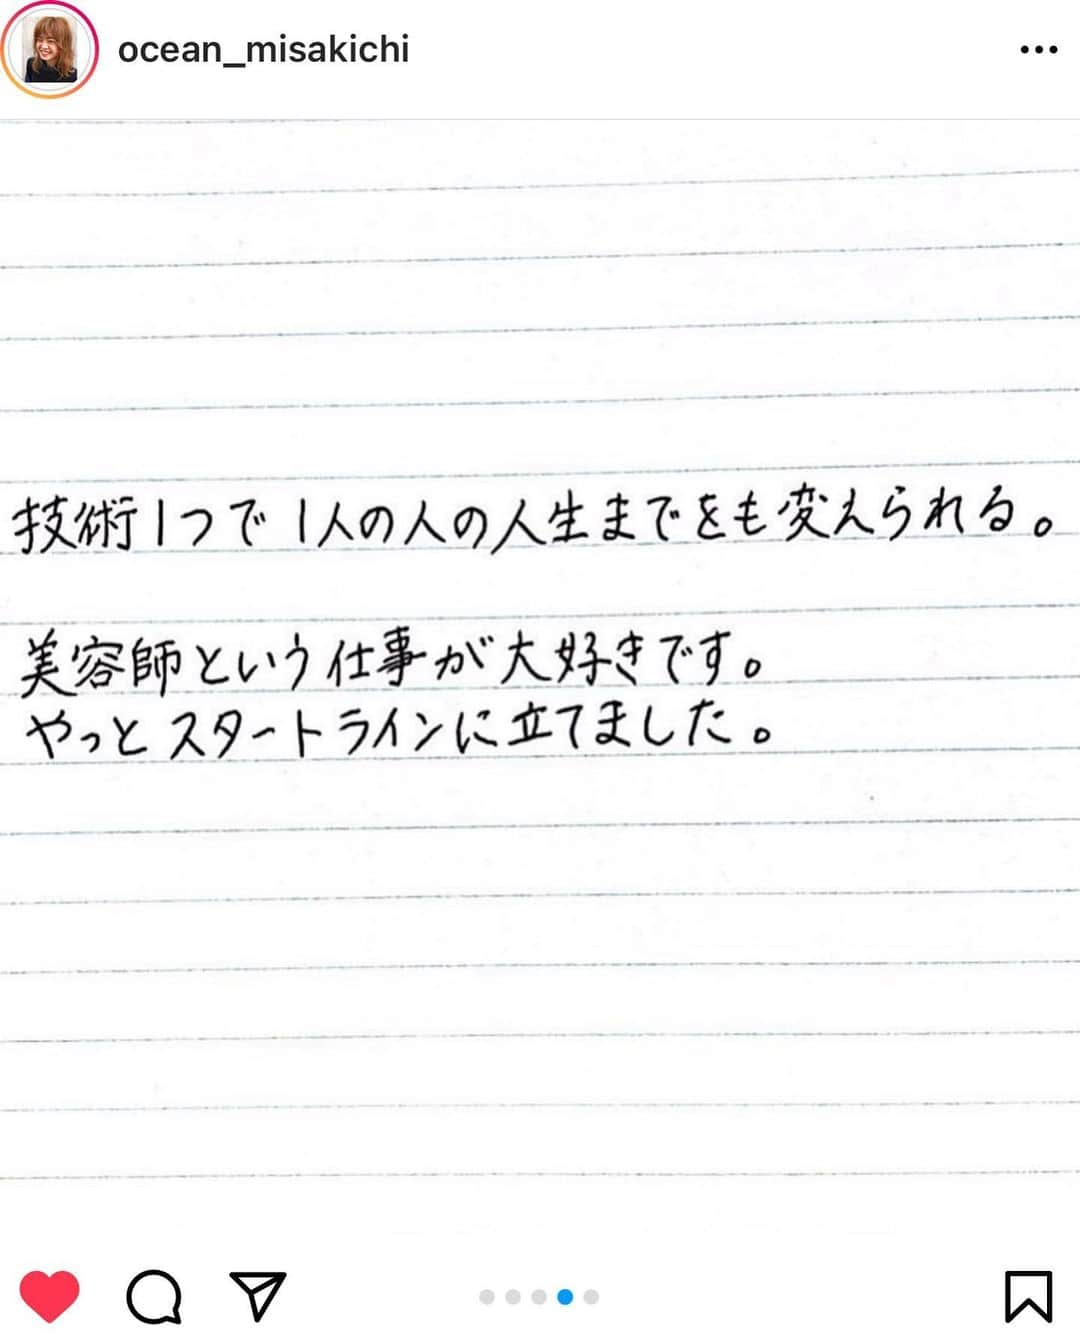 ocean_misakichi
技術1つで1人の人の人生までをも変えられる。
美容師という仕事が大好きです。
やっとスタートラインに立てました。